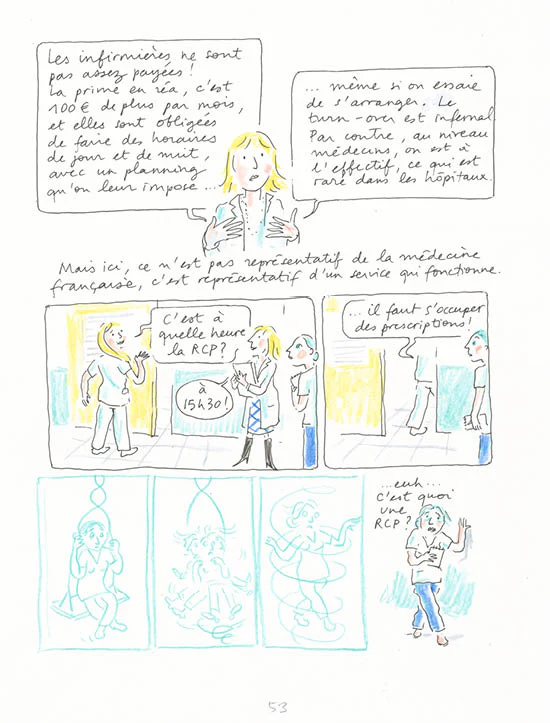 Les infirmières ne sont
pas assez payées !
La prime en réa, c'est
100 € de plus par mois,
et elles sont obligées
de faire des horaires
de jour et de nuit,
avec un planning
qu'on leur impose ...
... même si on essaie
de s'arranger. Le
turn-over est infernal.
Par contre, au niveau
médecins, on est à
l'effectif, ce qui est
rare dans les hôpitaux.
Mais ici, ce n'est pas représentatif de la médecine
française, c'est représentatif d'un service qui fonctionne.
C'est à
quelle heure
la RCP ?
à
15h30 !
... il faut s'occuper
des prescriptions !
...euh...
c'est quoi
une
RCP ?
53